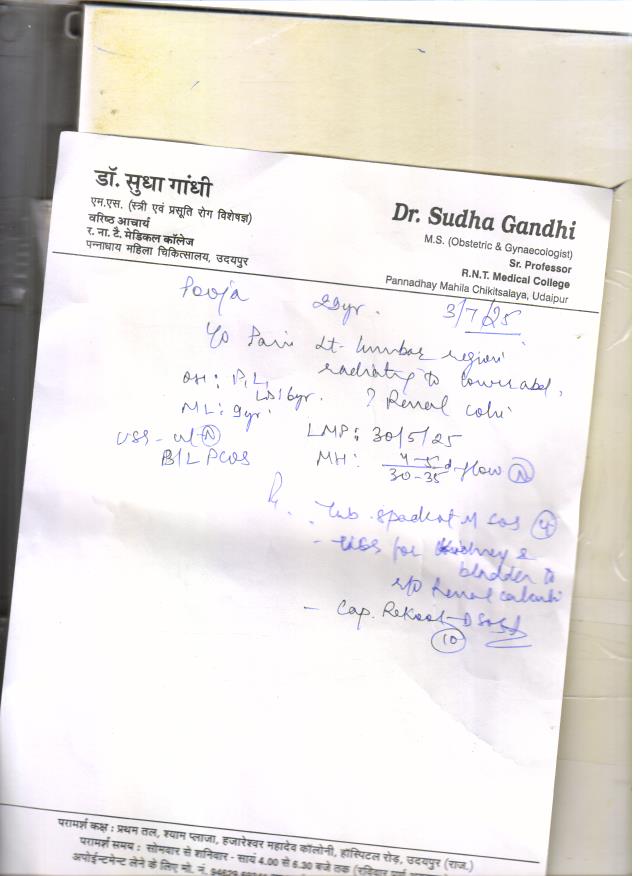 डॉ. सुधा गांधी
एम.एस. (स्त्री एवं प्रसूति रोग विशेषज्ञ)
वरिष्ठ आचार्य
र. ना. टै. मेडिकल कॉलेज
पन्नाधाय महिला चिकित्सालय, उदयपुर
Dr. Sudha Gandhi
M.S. (Obstetric & Gynaecologist)
Sr. Professor
R.N.T. Medical College
Pannadhay Mahila Chikitsalaya, Udaipur
Pooja 29yr. 3/7/25
Pain Lt. lumbar region
radiating to lower abd.
OH: P1L1
LD: 6yr. ? Renal colic
ML: 9yr.
LMP: 30/5/25
USS - ut - N
B/L PCOS
MH: 4-5/30-35 d flow N
Rx
- Tab. SOS 4
- USS for kidney &
bladder to
r/o Renal calculi
- Cap. 
10
परामर्श कक्ष : प्रथम तल, श्याम प्लाजा, हजारेश्वर महादेव कॉलोनी, हॉस्पिटल रोड़, उदयपुर (राज.)
परामर्श समय : सोमवार से शनिवार - सायं 4.00 से 6.30 बजे तक (रविवार पूर्ण
अपोईन्टमेन्ट लेने के लिए मो. नं.